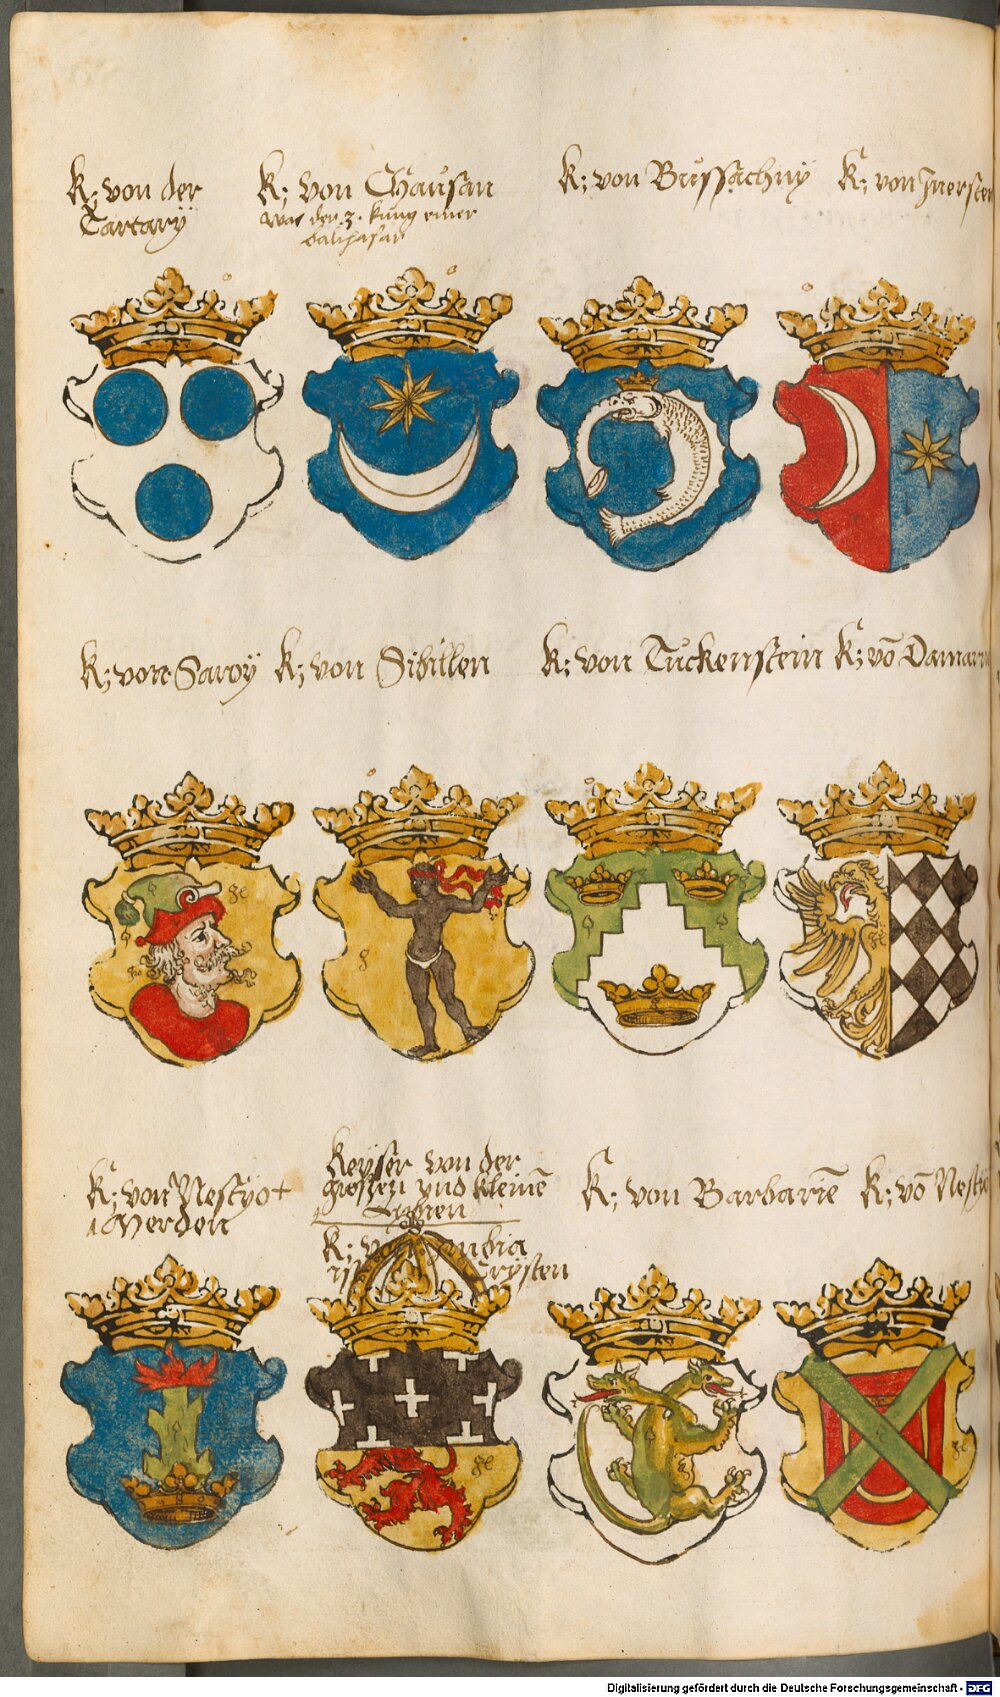 K; von der
Tartarÿ
K; von Chausan
was der 3. kung einer
K; von Bussachuÿ
K; von Inersten
K; von Savoÿ
K; von Sibillen
K; von Tuckenstein
K; võ Damarn
K; von Nestyor
Werden
Keÿser von der
grossen und kleinē
K; von Nubia
K; von Barbariē
K; võ Nesty
Digitalisierung gefördert durch die Deutsche Forschungsgemeinschaft - DFG